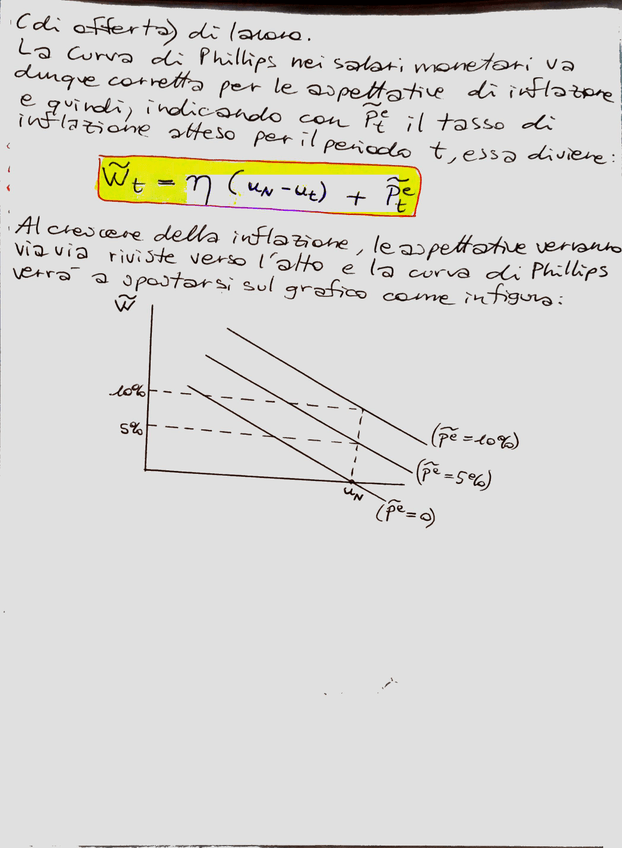 (di offerta) di lavoro.
La curva di Phillips nei salari monetari va
dunque corretta per le aspettative di inflazione
e quindi, indicando con p̃ᵉₜ il tasso di
inflazione atteso per il periodo t, essa diviene:
W̃ₜ = η (uₙ - uₜ) + p̃ᵉₜ
Al crescere della inflazione, le aspettative verranno
via via riviste verso l'alto e la curva di Phillips
verrà a spostarsi sul grafico come in figura:
W̃
10%
5%
(p̃ᵉ = 10%)
(p̃ᵉ = 5%)
uₙ
(p̃ᵉ = 0)